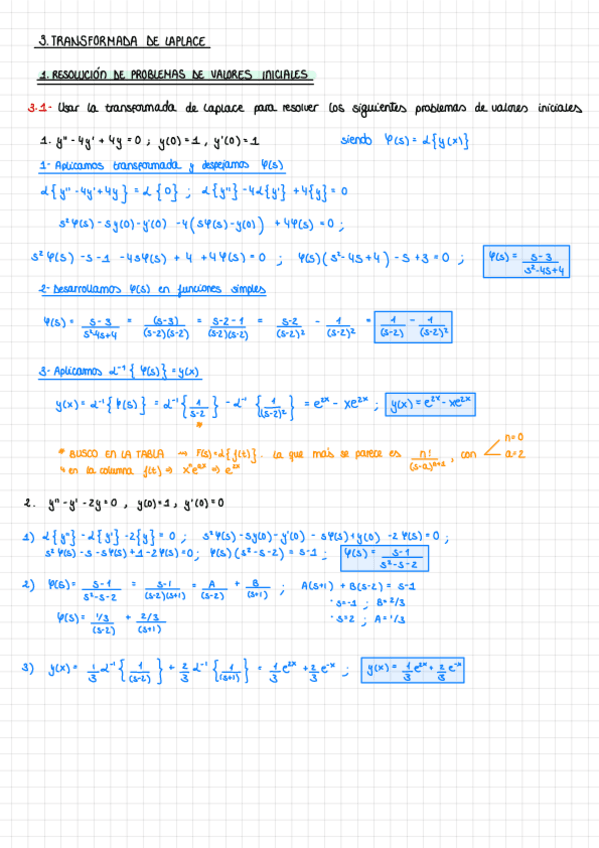 3. TRANSFORMADA DE LAPLACE
1. RESOLUCIÓN DE PROBLEMAS DE VALORES INICIALES
3.1- Usar la transformada de Laplace para resolver los siguientes problemas de valores iniciales
1. y'' - 4y' + 4y = 0 ; y(0) = 1 , y'(0) = 1 siendo φ(s) = ℒ{y(x)}
1- Aplicamos transformada y despejamos φ(s)
ℒ{y'' - 4y' + 4y} = ℒ{0} ; ℒ{y''} - 4ℒ{y'} + 4{y} = 0
s²φ(s) - sy(0) - y'(0) - 4(sφ(s) - y(0)) + 4φ(s) = 0 ;
s²φ(s) - s - 1 - 4sφ(s) + 4 + 4φ(s) = 0 ; φ(s)(s² - 4s + 4) - s + 3 = 0 ; φ(s) = s-3 / s²-4s+4
2- Desarrollamos φ(s) en funciones simples
φ(s) = s-3 / s²-4s+4 = (s-3) / (s-2)(s-2) = s-2-1 / (s-2)(s-2) = s-2 / (s-2)² - 1 / (s-2)² = 1 / (s-2) - 1 / (s-2)²
3- Aplicamos ℒ⁻¹{φ(s)} = y(x)
y(x) = ℒ⁻¹{φ(s)} = ℒ⁻¹{1 / s-2} - ℒ⁻¹{1 / (s-2)²} = e²ˣ - xe²ˣ ; y(x) = e²ˣ - xe²ˣ
*
* BUSCO EN LA TABLA → F(s) = ℒ{f(t)}. La que más se parece es n! / (s-a)ⁿ⁺¹ , con n=0 a=2
↳ en la columna f(t) ⇒ xⁿeᵃˣ ⇒ e²ˣ
2. y'' - y' - 2y = 0 , y(0) = 1 , y'(0) = 0
1) ℒ{y''} - ℒ{y'} - 2{y} = 0 ; s²φ(s) - sy(0) - y'(0) - sφ(s) + y(0) - 2φ(s) = 0 ;
s²φ(s) - s - sφ(s) + 1 - 2φ(s) = 0 ; φ(s)(s² - s - 2) = s - 1 ; φ(s) = s-1 / s²-s-2
2) φ(s) = s-1 / s²-s-2 = s-1 / (s-2)(s+1) = A / (s-2) + B / (s+1) ; A(s+1) + B(s-2) = s-1
· s=-1 ; B=2/3
φ(s) = 1/3 / (s-2) + 2/3 / (s+1) · s=2 ; A=1/3
3) y(x) = 1/3 ℒ⁻¹{1 / (s-2)} + 2/3 ℒ⁻¹{1 / (s+1)} = 1/3 e²ˣ + 2/3 e⁻ˣ ; y(x) = 1/3 e²ˣ + 2/3 e⁻ˣ